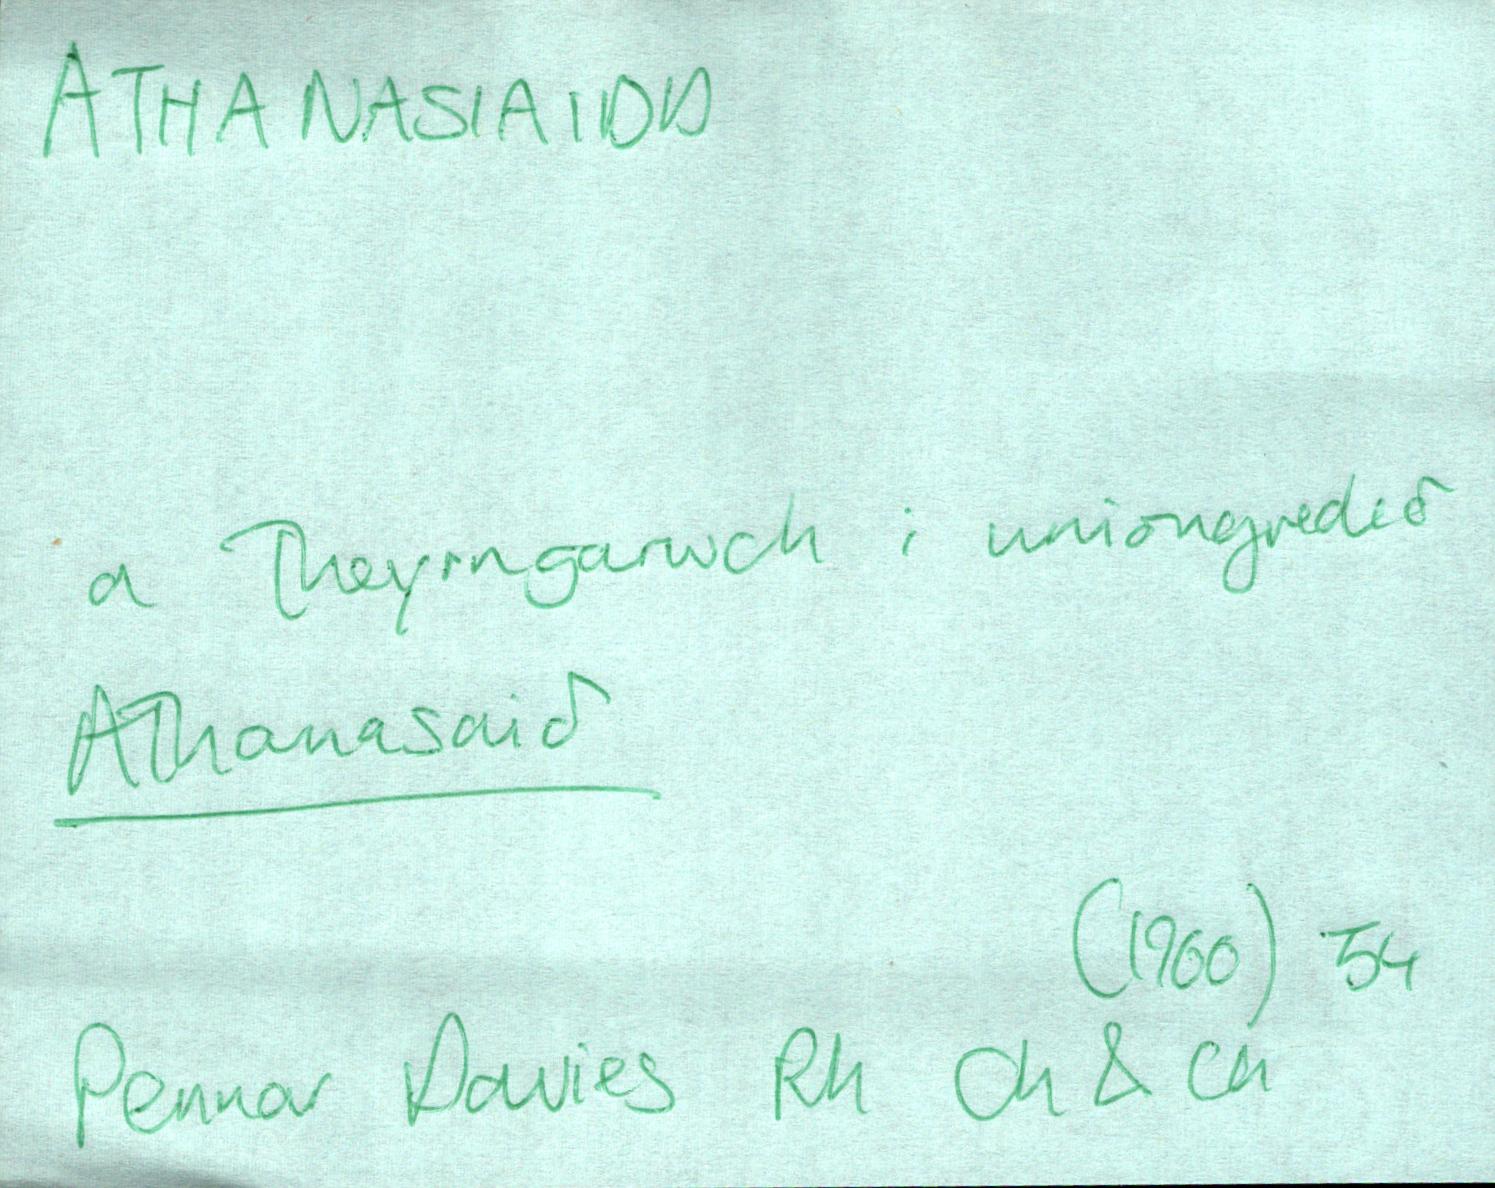 ATHANASIAIDD
a Theyrngarwch i uniongredeδ
Athanasaiδ
(1966) 54
Pennar Davies Rh Ch & Ch